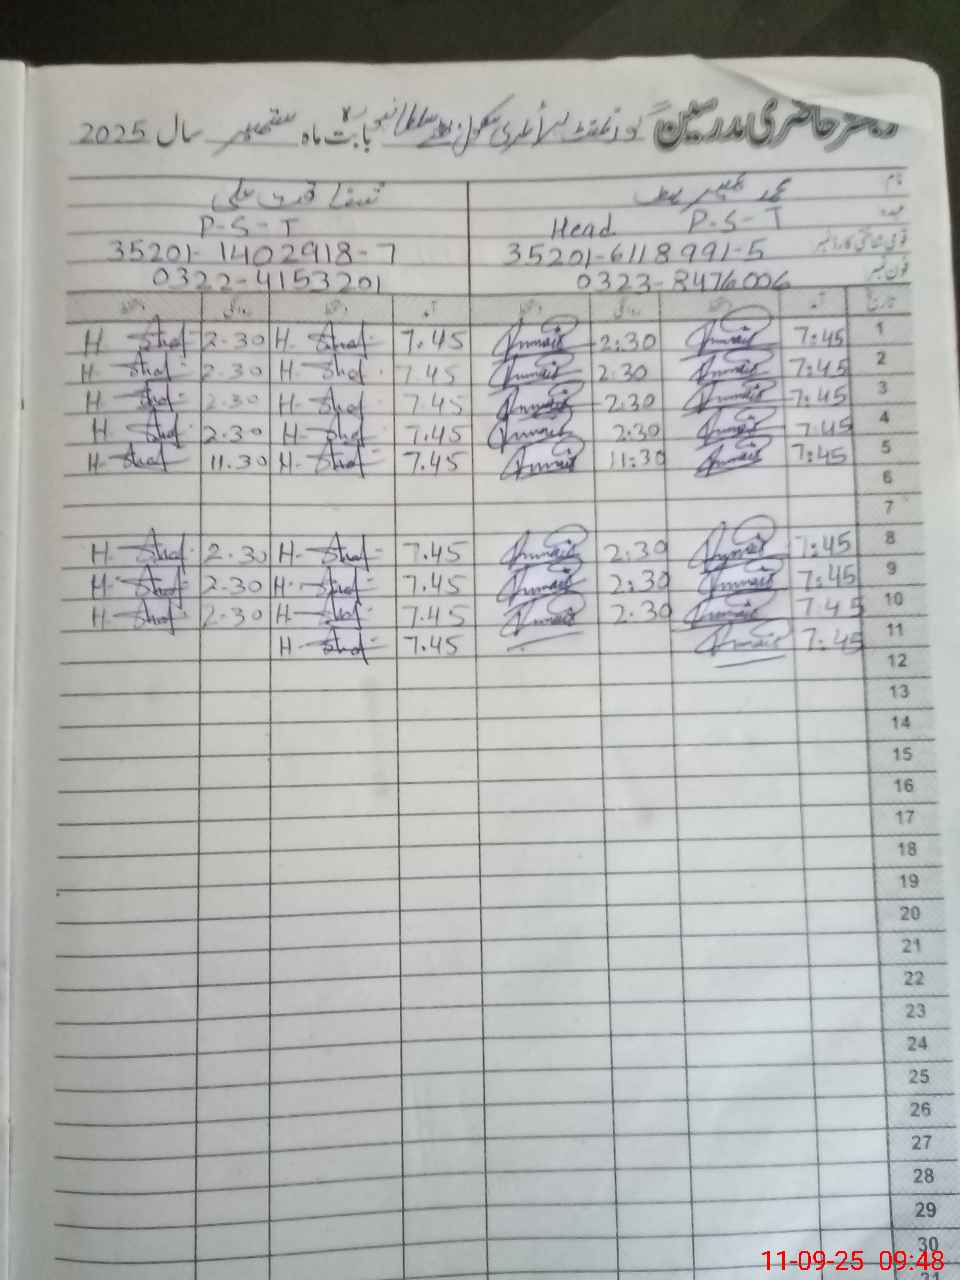 دفتر حاضری مدرسین گورنمنٹ پرائمری سکول بابت ماہ ستمبر سال 2025
نام محمد
عہدہ Head P-S-T P-S-T
قومی شناختی کارڈ نمبر 35201-6118991-5 35201-1402918-7
فون نمبر 0323-8476006 0322-4153201
تاریخ آمد دستخط روانگی دستخط آمد دستخط روانگی دستخط
1 7:45 2:30 7.45 H- Shaf 2-30 H- Shaf
2 7:45 2:30 7.45 H- Shaf 2.30 H- Shaf
3 7:45 2:30 7.45 H- Shaf 2.30 H- Shaf
4 7:45 2:30 7.45 H- Shaf 2.30 H- Shaf
5 7:45 11:30 7.45 H- Shaf 11.30 H- Shaf
6
7
8 7:45 2:30 7.45 H- Shaf 2.30 H- Shaf
9 7:45 2:30 7.45 H- Shaf 2-30 H- Shaf
10 7:45 2:30 7.45 H- Shaf 2-30 H- Shaf
11 7:45 7.45 H- Shaf
12
13
14
15
16
17
18
19
20
21
22
23
24
25
26
27
28
29
30
31
11-09-25 09:48